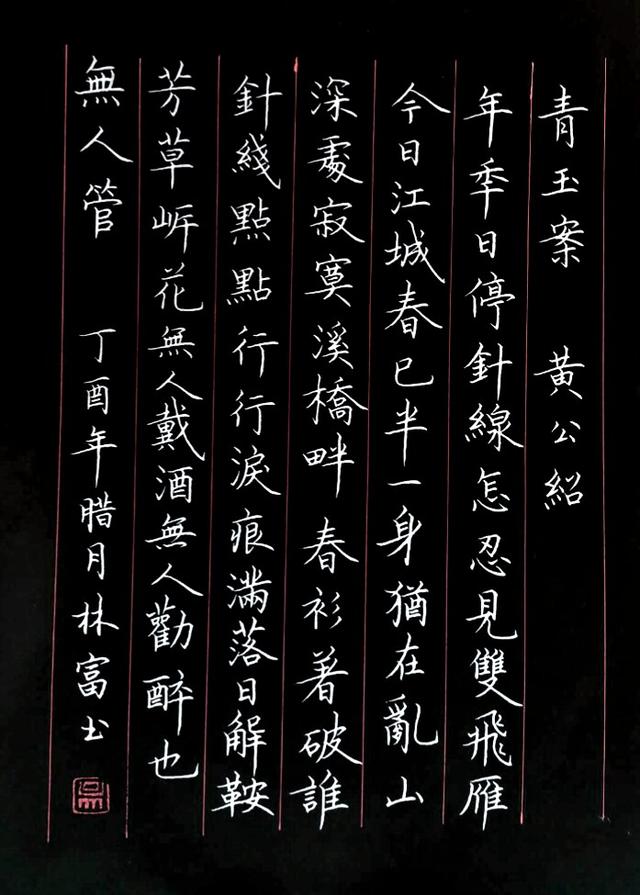 青玉案 黃公紹
年年日停針線怎忍見雙飛雁
今日江城春已半一身猶在亂山
深處寂寞溪橋畔 春衫著破誰
針綫點點行行淚痕滿落日解鞍
芳草岸花無人戴酒無人勸醉也
無人管 丁酉年腊月林富书